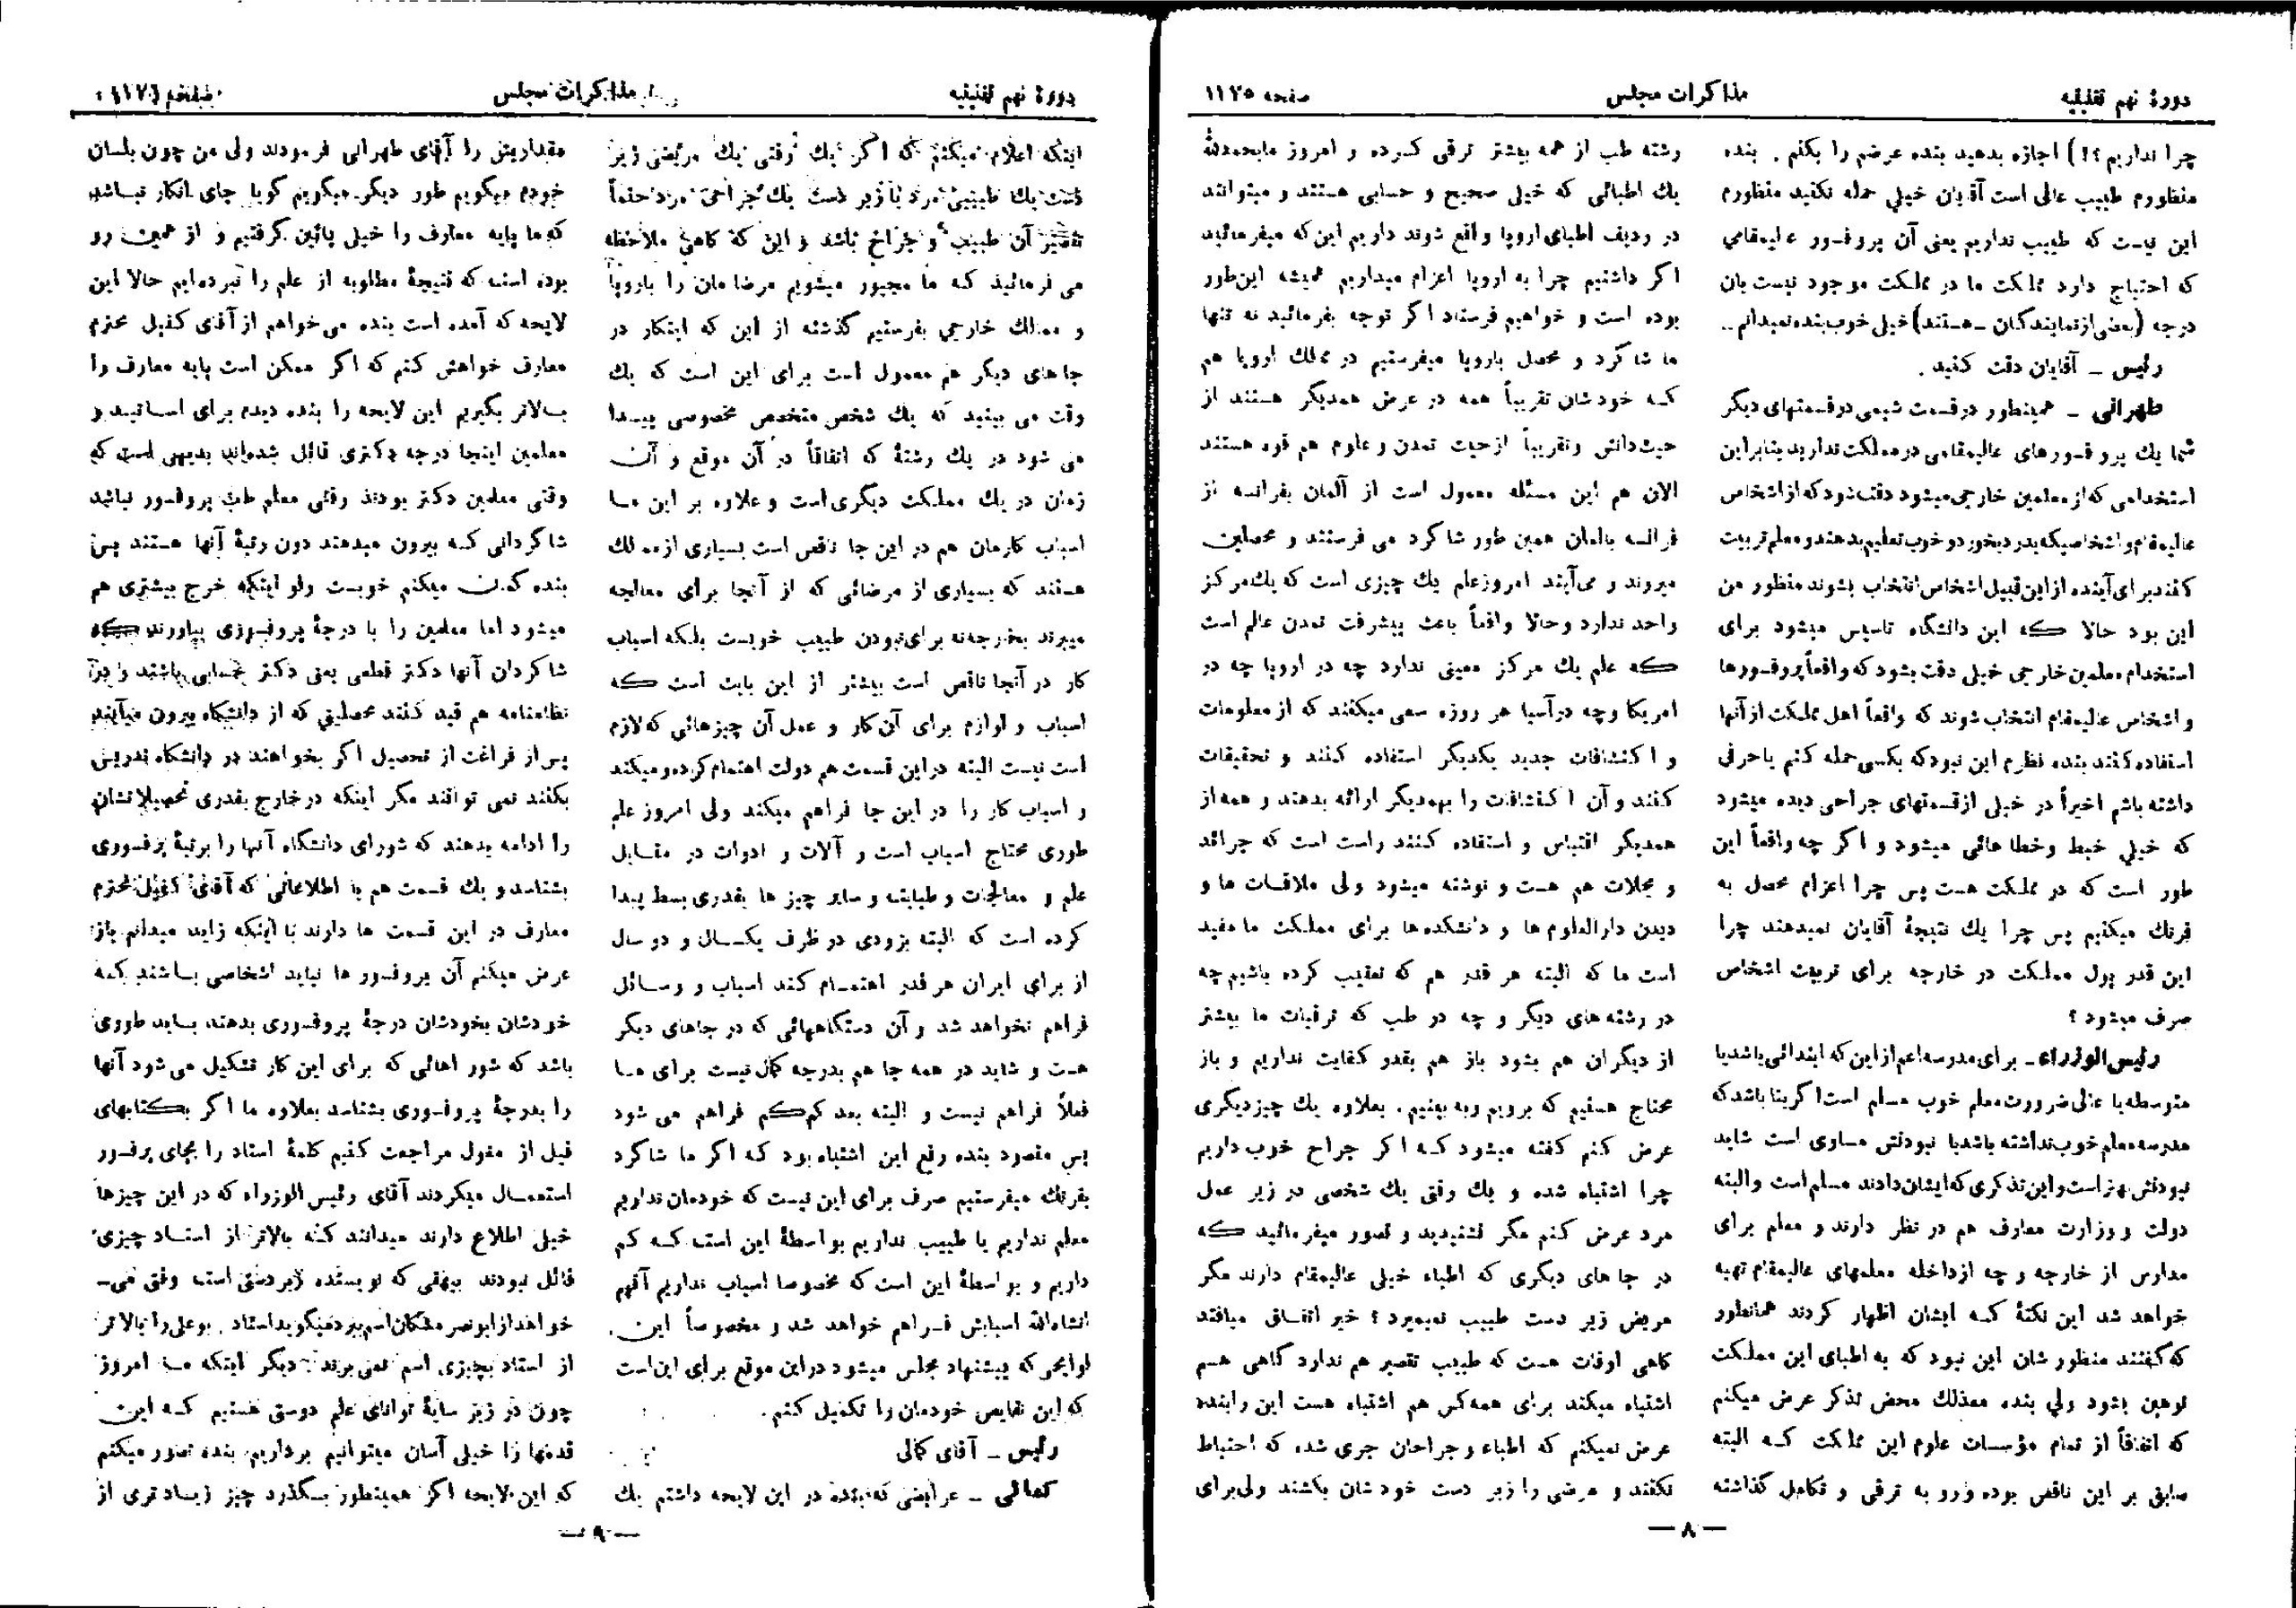 دورهٔ نهم تقنینیه
مذاکرات مجلس
صفحه ۱۱۷۵
چرا نداریم ؟!) اجازه بدهید بنده عرضم را بکنم . بنده
منظورم طبیب عالی است آقایان خیلی حمله نکنید منظورم
این نیست که طبیب نداریم یعنی آن پروفسور عالیمقامی
که احتیاج دارد مملکت ما در مملکت موجود نیست بان
درجه (بعضی از نمایندگان ـ هستند) خیلی خوب بنده نمیدانم ..
رئیس ـ آقایان دقت کنید .
طهرانی ـ همینطور در قسمت شیمی در قسمتهای دیگر
شما یك پروفسورهای عالیمقامی در مملکت ندارید بنابراین
استخدامی که از معلمین خارجی میشود دقت شود که از اشخاص
عالیمقام و اشخاصیکه بدرد بخورد و خوب تعلیم بدهند و معلم تربیت
کنند برای آینده از این قبیل اشخاص انتخاب بشوند منظور من
این بود حالا که این دانشگاه تاسیس میشود برای
استخدام معلمین خارجی خیلی دقت بشود که واقعاً پروفسورها
و اشخاص عالیمقام انتخاب شوند که واقعاً اهل مملکت از آنها
استفاده کنند بنده نظرم این نبود که بکسی حمله کنم یا حرفی
داشته باشم اخیراً در خیلی از قسمتهای جراحی دیده میشود
که خیلی خبط وخطا هائی میشود و اگر چه واقعاً این
طور است که در مملکت هست پس چرا اعزام محصل به
فرنك میکنیم پس چرا یك نتیجهٔ آقایان نمیدهند چرا
این قدر پول مملکت در خارجه برای تربیت اشخاص
صرف میشود ؟
رئیس الوزراء ـ برای مدرسه اعم از این که ابتدائی باشد یا
متوسطه یا عالی ضرورت معلم خوب مسلم است اگر بنا باشد که
مدرسه معلم خوب نداشته باشد با نبودنش مساوی است شاید
نبودنش بهتر است و این تذکری که ایشان دادند مسلم است و البته
دولت و وزارت معارف هم در نظر دارند و معلم برای
مدارس از خارجه و چه از داخله معلمهای عالیمقام تهیه
خواهد شد این نکتهٔ که ایشان اظهار کردند همانطور
که گفتند منظور شان این نبود که به اطبای این مملکت
توهین بشود ولی بنده معذلك محض تذکر عرض میکنم
که اتفاقاً از تمام مؤسسات علوم این مملکت که البته
سابق بر این ناقص بوده ورو به ترقی و تکامل گذاشته
رشته طب از همه بیشتر ترقی کرده و امروز مابحمدالله
یك اطبائی که خیلی صحیح و حسابی هستند و میتوانند
در ردیف اطبای اروپا واقع شوند داریم این که میفرمائید
اگر داشتیم چرا به اروپا اعزام میداریم همیشه این طور
بوده است و خواهیم فرستاد اگر توجه بفرمائید نه تنها
ما شاگرد و محصل باروپا میفرستیم در ممالك اروپا هم
که خودشان تقریباً همه در عرض همدیگر هستند از
حیث دانش وتقریباً ازحیث تمدن و علوم هم قوه هستند
الان هم این مسئله معمول است از آلمان بفرانسه از
فرانسه بالمان همین طور شاگرد می فرستند و محصلین
میروند و می‌آیند امروز علم یك چیزی است که یك مرکز
واحد ندارد وحالا واقعاً باعث پیشرفت تمدن عالم است
که علم یك مرکز معینی ندارد چه در اروپا چه در
امریکا وچه درآسیا هر روزه سعی میکنند که از معلومات
و اکتشافات جدید یکدیگر استفاده کنند و تحقیقات
کنند و آن اکتشافات را بهمدیگر ارائه بدهند و همه از
همدیگر اقتباس و استفاده کنند راست است که جرائد
و مجلات هم هست و نوشته میشود ولی ملاقات ها و
دیدن دارالعلوم ها و دانشکده‌ها برای مملکت ما مفید
است ما که البته هر قدر هم که تعقیب کرده باشیم چه
در رشته‌های دیگر و چه در طب که ترقیات ما بیشتر
از دیگران هم بشود باز هم بقدر کفایت نداریم و باز
محتاج هستیم که برویم وبه بینیم . بعلاوه یك چیز دیگری
عرض کنم گفته میشود که اگر جراح خوب داریم
چرا اشتباه شده و یك وقتی یك شخصی در زیر عمل
مرد عرض کنم مگر نشنیدید و تصور میفرمائید که
در جا های دیگری که اطباء خیلی عالیمقام دارند مگر
مریض زیر دست طبیب نمیمیرد ؟ خیر اتفاق میافتد
گاهی اوقات هست که طبیب تقصیر هم ندارد گاهی هم
اشتباه میکند برای همه کس هم اشتباه هست این را بنده
عرض نمیکنم که اطباء و جراحان جری شده که احتیاط
نکنند و مرضی را زیر دست خودشان بکشند ولی برای
ـ ۸ ـ
دورهٔ نهم تقنینیه
مذاکرات مجلس
صفحه ۱۱۷۶
اینکه اعلام میکنم که اگر یك وقتی یك مریضی زیر
دست یك طبیبی مرد یا زیر دست یك جراحی مرد حتماً
تقصیر آن طبیب و جراح باشد و این که گاهی ملاحظه
می فرمائید که ما مجبور میشویم مرضا مان را باروپا
و ممالك خارجی بفرستیم گذشته از این که اینکار در
جاهای دیگر هم معمول است برای این است که یك
وقت می بینید که یك شخص متخصص مخصوصی پیدا
می شود در یك رشتهٔ که اتفاقاً در آن موقع و آن
زمان در یك مملکت دیگری است و علاوه بر این ما
اسباب کارمان هم در این جا ناقص است بسیاری از ممالك
هستند که بسیاری از مرضائی که از آنجا برای معالجه
میبرند بخارجه نه برای نبودن طبیب خوبست بلکه اسباب
کار در آنجا ناقص است بیشتر از این بابت است که
اسباب و لوازم برای آن کار و عمل آن چیزهائی که لازم
است نیست البته در این قسمت هم دولت اهتمام کرده و میکند
و اسباب کار را در این جا فراهم میکند ولی امروز علم
طوری محتاج اسباب است و آلات و ادوات در مقابل
علم و معالجات و طبابت و سایر چیز ها بقدری بسط پیدا
کرده است که البته بزودی در ظرف یکسال و دو سال
از برای ایران هر قدر اهتمام کند اسباب و وسائل
فراهم نخواهد شد و آن دستگاههائی که در جاهای دیگر
هست و شاید در همه جا هم بدرجه کمال نیست برای ما
فعلاً فراهم نیست و البته بعد کم‌کم فراهم می شود
پس مقصود بنده رفع این اشتباه بود که اگر ما شاگرد
بفرنك میفرستیم صرف برای این نیست که خودمان نداریم
معلم نداریم یا طبیب نداریم بواسطهٔ این است که کم
داریم و بواسطهٔ این است که مخصوصا اسباب نداریم آنهم
انشاءالله اسبابش فراهم خواهد شد و مخصوصاً این
لوایحی که پیشنهاد مجلس میشود در این موقع برای این است
که این نقایص خودمان را تکمیل کنم .
رئیس ـ آقای کمالی
کمالی ـ عرایضی که بنده در این لایحه داشتم یك
مقداریش را آقای طهرانی فرمودند ولی من چون بلسان
خودم میگویم طور دیگر میگویم گویا جای انکار نباشد
که ما پایه معارف را خیلی پائین گرفتیم و از همین رو
بوده است که نتیجهٔ مطلوبه از علم را نبرده‌ایم حالا این
لایحه که آمده است بنده می‌خواهم از آقای کفیل محترم
معارف خواهش کنم که اگر ممکن است پایه معارف را
بالاتر بگیریم این لایحه را بنده دیدم برای اساتید و
معلمین اینجا درجه دکتری قائل شده‌اند بدیهی است که
وقتی معلمین دکتر بودند وقتی معلم طب پروفسور نباشد
شاگردانی که بیرون میدهند دون رتبهٔ آنها هستند پس
بنده گمان میکنم خوبست ولو اینکه خرج بیشتری هم
میشود اما معلمین را با درجهٔ پروفسوری بیاورند که
شاگردان آنها دکتر قطعی یعنی دکتر حسابی باشند و در
نظامنامه هم قید کنند محصلینی که از دانشگاه بیرون میآیند
پس از فراغت از تحصیل اگر بخواهند در دانشگاه تدریس
بکنند نمی توانند مگر اینکه در خارج بقدری تحصیلاتشان
را ادامه بدهند که شورای دانشگاه آنها را برتبهٔ پرفسوری
بشناسد و یك قسمت هم با اطلاعاتی که آقای کفیل محترم
معارف در این قسمت ها دارند با اینکه زاید میدانم باز
عرض میکنم آن پروفسور ها نباید اشخاصی باشند که
خودشان بخودشان درجهٔ پروفسوری بدهند باید طوری
باشد که شور اهالی که برای این کار تشکیل می شود آنها
را بدرجهٔ پروفسوری بشناسد بعلاوه ما اگر بکتابهای
قبل از مغول مراجعت کنیم کلمهٔ استاد را بجای پرفسور
استعمال میکردند آقای رئیس الوزراء که در این چیزها
خیلی اطلاع دارند میدانند که بالاتر از استاد چیزی
قائل نبودند بیهقی که نویسنده زبردستی است وقتی می‌ـ
خواهد از ابونصر مشکان اسم ببرد میگوید استاد . بوعلی را بالاتر
از استاد بچیزی اسم نمی برند دیگر اینکه ما امروز
چون در زیر سایهٔ توانای علم دوستی هستیم که این
قدمها را خیلی آسان میتوانیم برداریم بنده تصور میکنم
که این لایحه اگر همینطور بگذرد چیز زیادتری از
ـ ۹ ـ